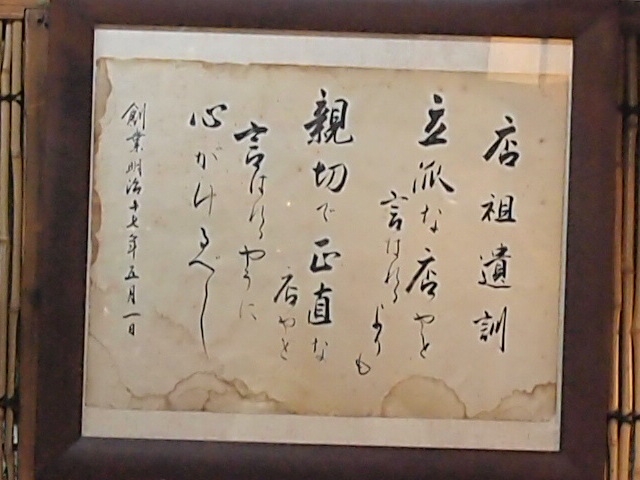 店祖遺訓
立派な店やと
言はれるよりも
親切で正直な
店やと
言はれるやうに
心がけるべし
創業明治十七年五月一日